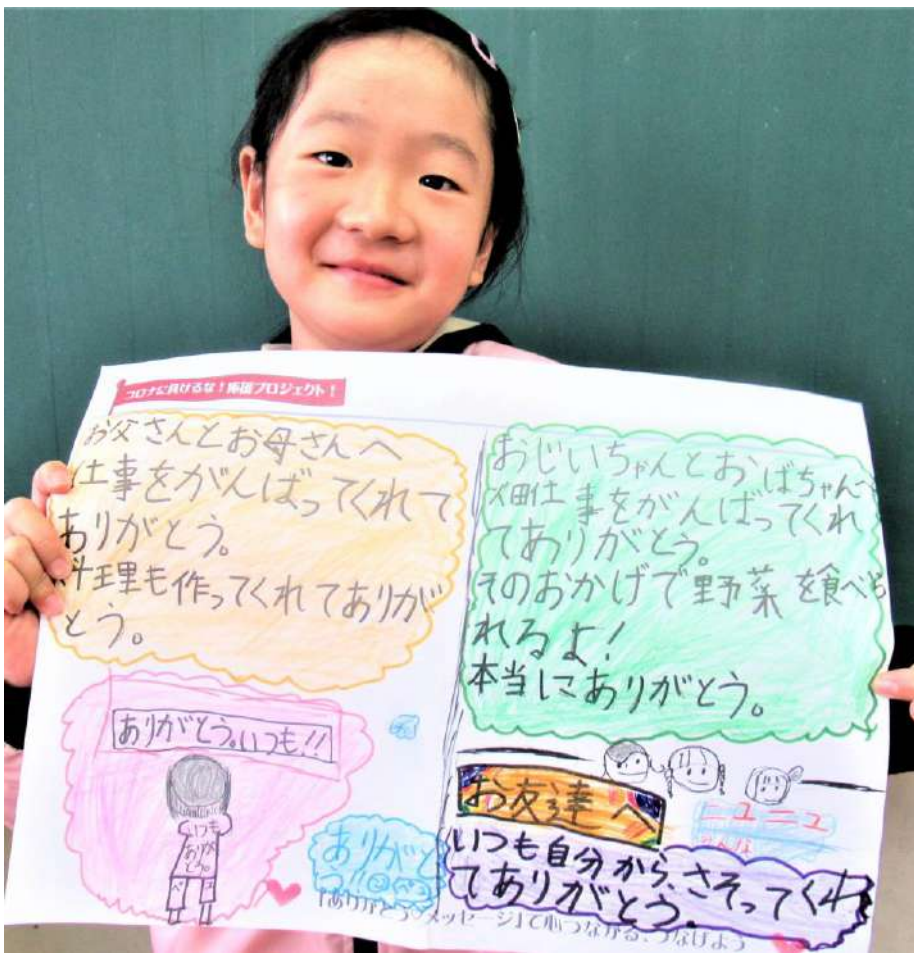 コロナに負けるな！応援プロジェクト！
お父さんとお母さんへ
仕事をがんばってくれて
ありがとう。
料理も作ってくれてありが
とう。
おじいちゃんとおばちゃんへ
畑仕事をがんばってくれ
てありがとう。
そのおかげで野菜を食べら
れるよ！
本当にありがとう。
ありがとう。いつも!!
いつも
ありがとう。
ありがと
う!!
お友達へ
ニュニュ
みんな
いつも自分から、さそってくれ
てありがとう。
「ありがとうメッセージ」で心つながる、つなげよう